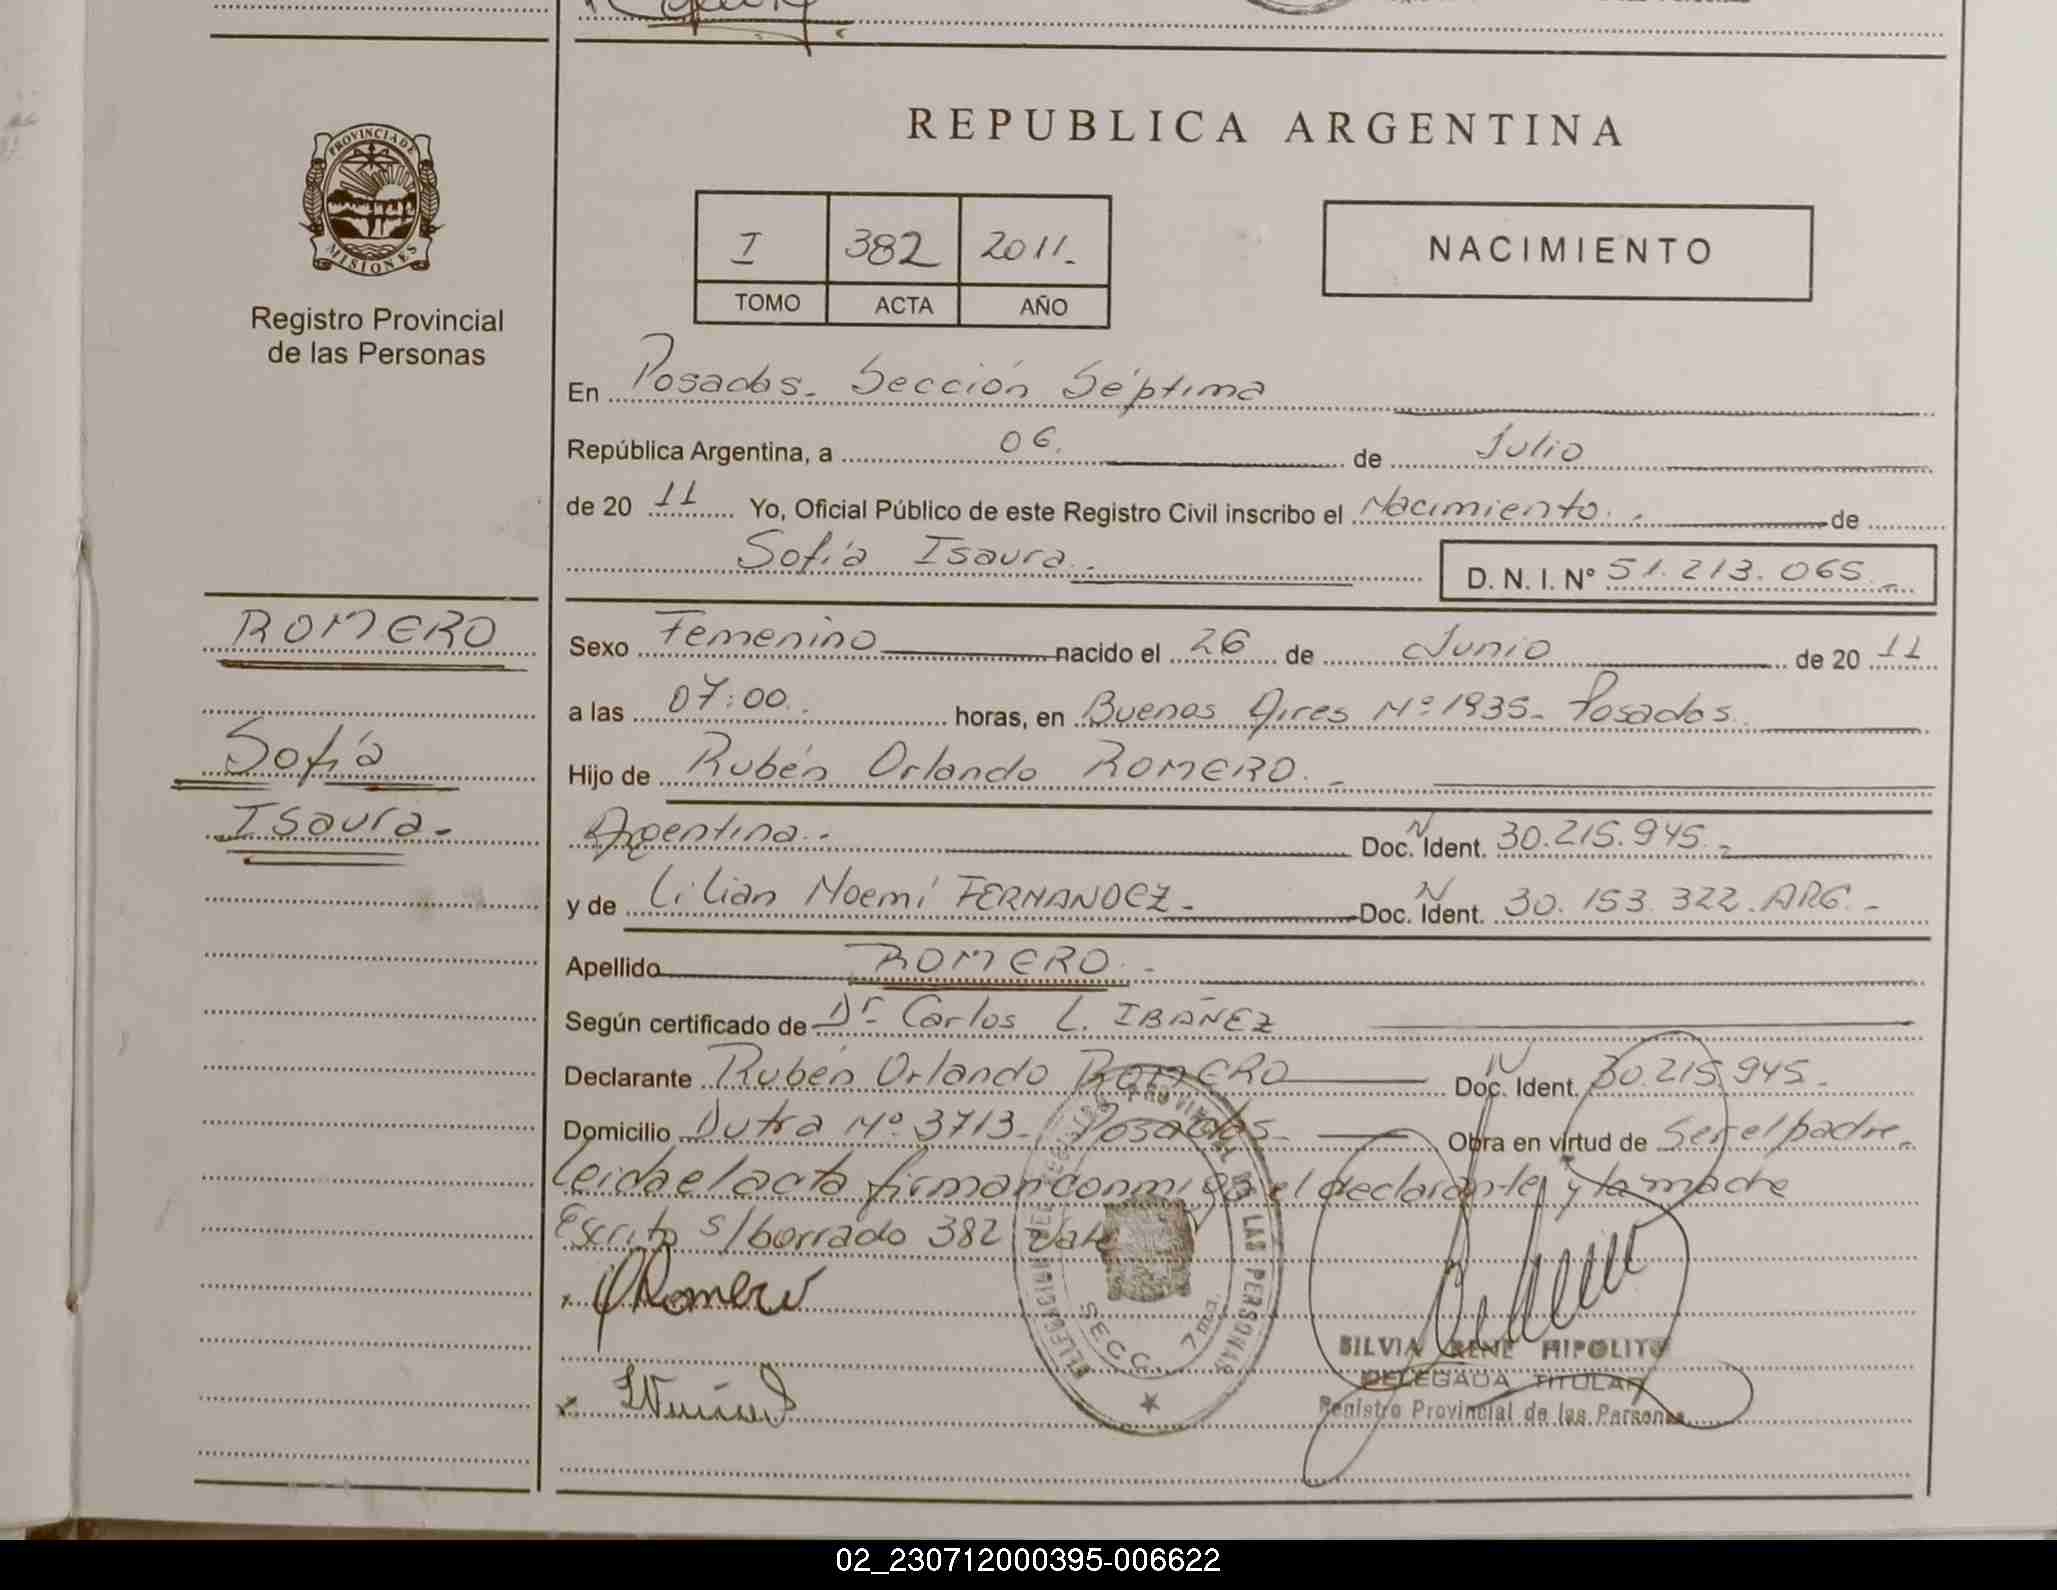 REPUBLICA ARGENTINA
PROVINCIA DE
MISIONES
Registro Provincial
de las Personas
I 382 2011.-
TOMO ACTA AÑO
NACIMIENTO
En Posadas- Sección Séptima
República Argentina, a 06. de Julio
de 20 11 Yo, Oficial Público de este Registro Civil inscribo el Nacimiento. - de
Sofía Isaura.- D. N. I. Nº 51.213.065.-
ROMERO
Sofía
Isaura.-
Sexo Femenino nacido el 26 de Junio de 20 11
a las 07:00.- horas, en Buenos Aires Nº 1935- Posadas.
Hijo de Rubén Orlando ROMERO.-
Argentina.- Doc. N Ident. 30.215.945.-
y de Lilian Noemí FERNANDEZ.- Doc. N Ident. 30.153.322.ARG.-
Apellido ROMERO.-
Según certificado de Dr. Carlos L. IBAÑEZ
Declarante Rubén Orlando ROMERO Doc. N Ident. 30.215.945.-
Domicilio Dutra Nº 3713- Posadas- Obra en virtud de Ser el padre.-
Leida el acta firman conmigo el declarante y la madre
Escrito s/borrado 382 Vale
x Romero
x
DELEGACION DEL REGISTRO PROVINCIAL DE LAS PERSONAS
SECC. 7ma.
SILVIA RENE HIPOLITO
DELEGADA TITULAR
Registro Provincial de las Personas
02_230712000395-006622